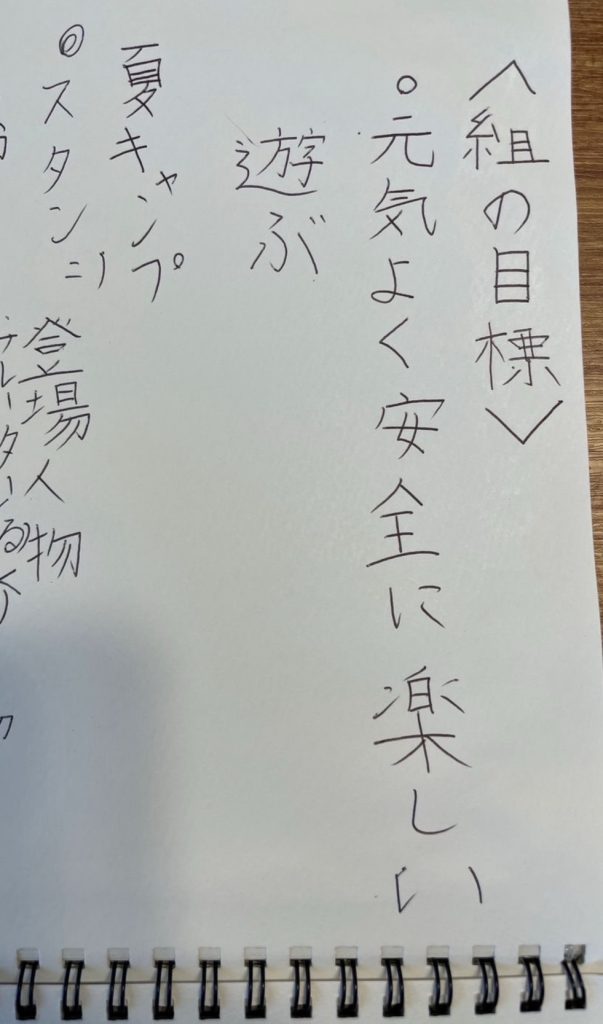 〈組の目標〉
○元気よく安全に楽しい
遊ぶ
夏キャンプ
◎スタンツ
登場人物